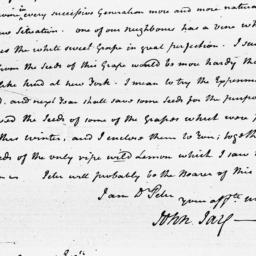 in every successive Generation more and more natura
Situation. one of our neighbours has a vine wh
the white sweet Grape in great perfection. I su
from the Seeds of this Grape would be more hardy the
like kind at new York. I mean to try the Experime
and next year shall save some Seeds for the purpo
the Seeds of some of the Grapes which were
this winter, and I enclose them to you; togeth
of the only ripe wild Lemon which I saw
Peter will probably be the Bearer of this
I am Dr Peter
your affte
John Jay